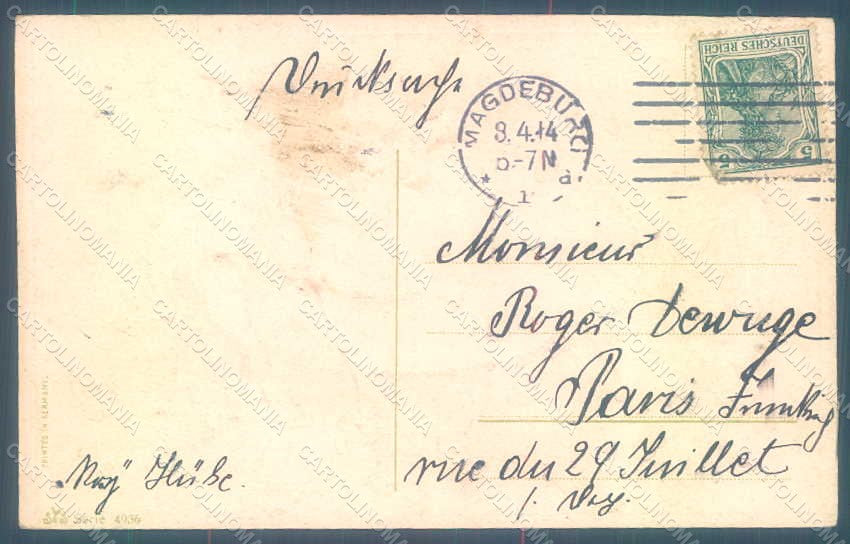 Drucksache
MAGDEBURG
8.4.14
5-7N
* a.
1
DEUTSCHES REICH
5 5
Monsieur
Roger Dewuge
Paris
rue du 29 Juillet
PRINTED IN GERMANY.
Serie 4936
CARTOLINOMANIA